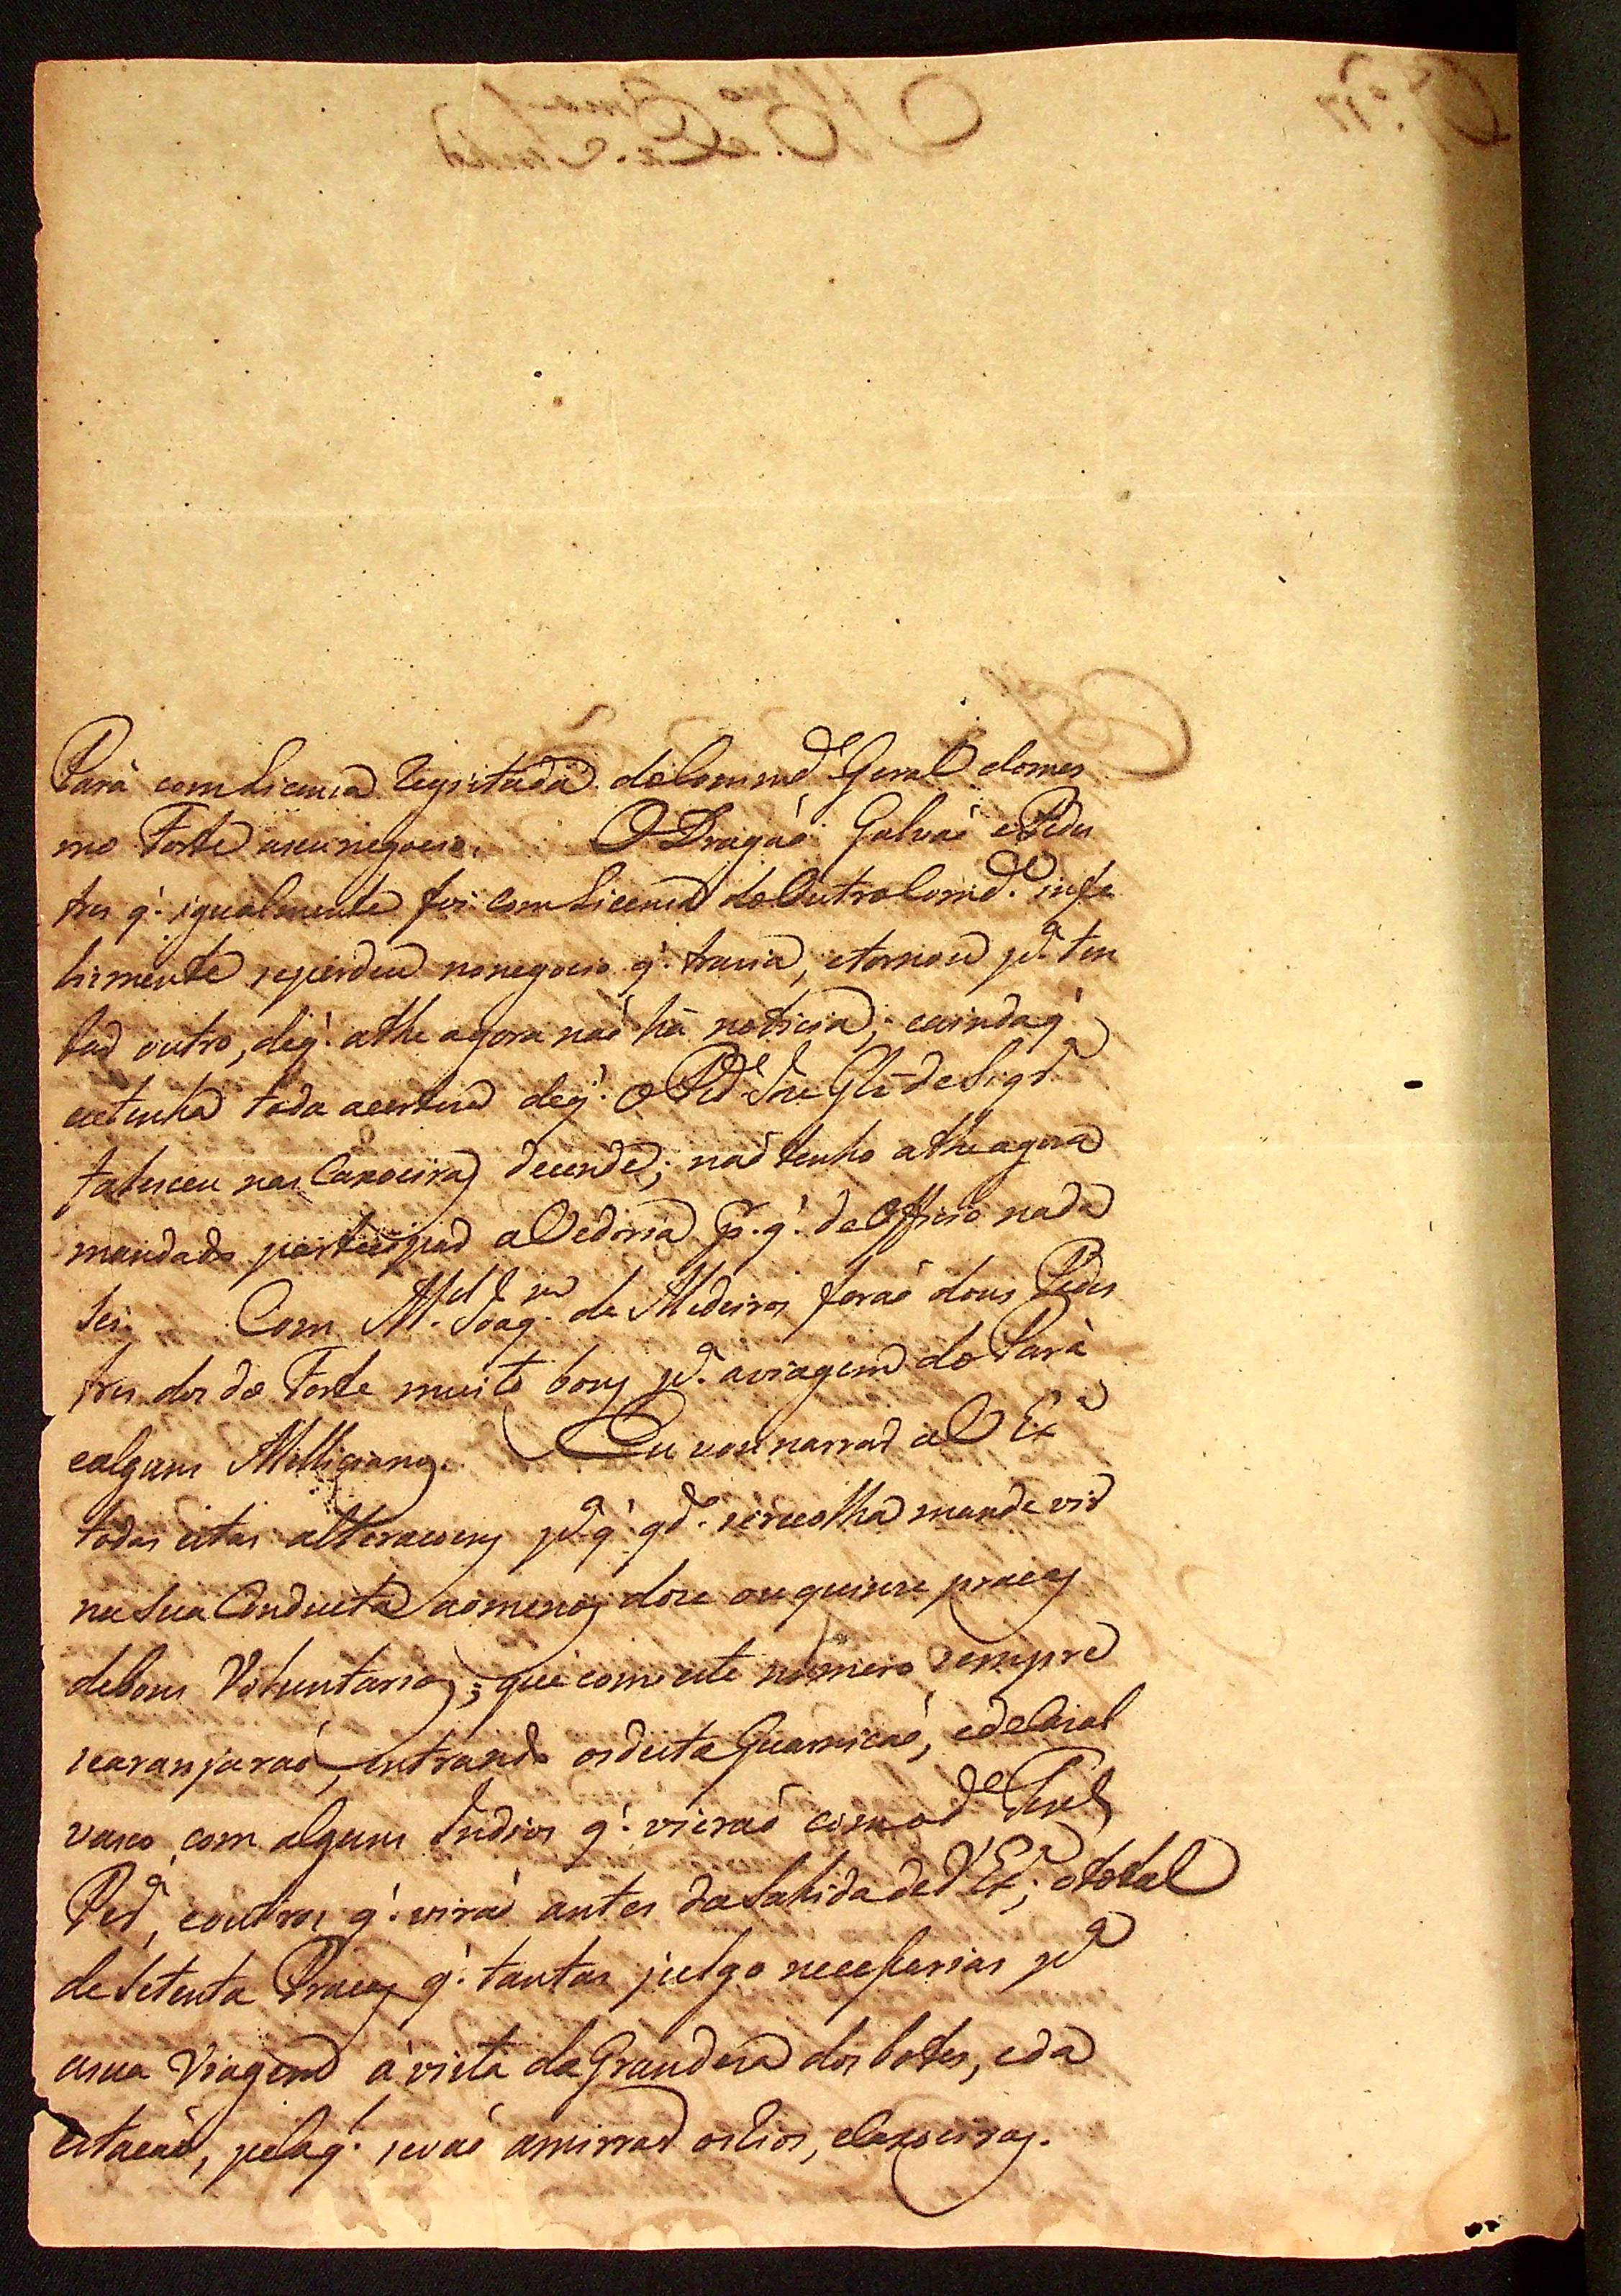 Pará com Licença registada do Comm.de Geral do mes
mo Forte a seu negocio. O Dragaõ Galvaõ e Pedes
tres q̃. igualmente foi com Licença do Outro Com.de infe
lizmente se perdeu no negocio q̃. trasia, e tornou p.a ten
tar outro, de q̃. athe agora naõ há noticia; e ainda q̃
eu tenha toda a certeza de q̃. O Ped.e Joze Glz̃ de Siqr.a
faleceu nas Caxoeiras decendo; naõ tenho athe agora
mandado participar a Vedoria p. q̃. de Officio nada
sei. Com M.el Joaq.m de Medeiros foraõ dous Pedes
tres dos do Forte muito bons p.a a viagem do Pará
e alguns Millicianos. Eu vou narrar a V Ex.a
todas estas alteracoens p.a q̃ q.do se recolha mande vir
na sua Conducta ao menos doze ou quinze pracas
de bons Voluntarios; que com este numero sempre
se aranjaraõ, entrando os desta Guarniçaõ, e de Casal
vasco com alguns Indios q̃. vieraõ com o d.e
Ped.a, e outros q̃. viraõ antes da Sahida de V Ex.a; o total
de Setenta Pracas q̃. tantas julgo necessarias p.a
a sua Viagem á vista da Grandeza dos botes, e da
estacaõ, pela q̃. se vaõ amirrar os Rios, e Caxoeiras.